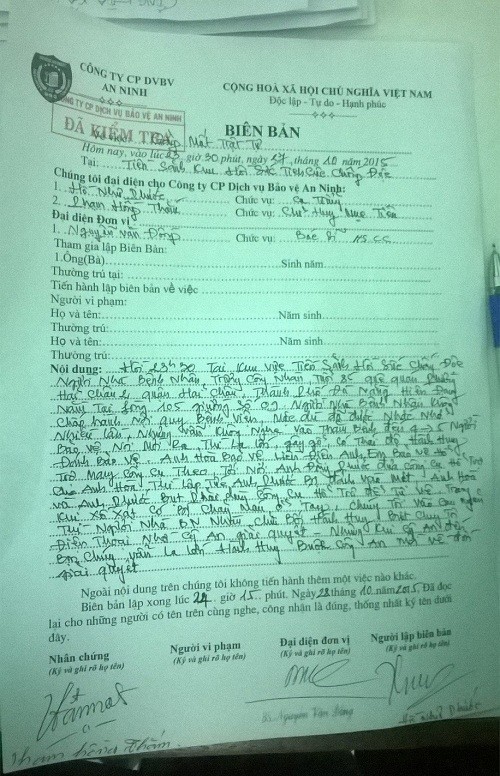 CÔNG TY CP DVBV
AN NINH
CỘNG HOÀ XÃ HỘI CHỦ NGHĨA VIỆT NAM
Độc lập - Tự do - Hạnh phúc
CÔNG TY CP DỊCH VỤ BẢO VỆ AN NINH
ĐÃ KIỂM TRA
BIÊN BẢN
Mất Trật Tự
Hôm nay, vào lúc 23 giờ 30 phút, ngày 27, tháng 10 năm 2015
Tại: Tiền Sảnh Khu Hồi Sức Chống Độc
Chúng tôi đại diện cho Công ty CP Dịch vụ Bảo vệ An Ninh:
1. Hồ Như Phước Chức vụ: Ca Trưởng
2. Phan Hồng Thắm Chức vụ: Chỉ Huy Mục Tiêu
Đại diện Đơn vị
1. Nguyễn Văn Đông Chức vụ: Bác Sĩ HSCC
Tham gia lập Biên Bản:
1.Ông(Bà) Sinh năm
Thường trú tại:
Tiến hành lập biên bản về việc
Người vi phạm:
Họ và tên: Năm sinh
Thường trú:
Họ và tên: Năm sinh
Thường trú:
Nội dung: Hồi 23h30 Tại Khu Vực Tiền Sảnh Hồi Sức Chống Độc
Người Nhà Bệnh Nhân Quê quán Phường
Hải Châu 1, quận Hải Châu, Thành Phố Đà Nẵng Hiện Đang
Nằm Tại Phòng 105 giường Số 01 Người Nhà Bệnh Nhân Không
Chấp hành Nội quy Bệnh Viện Mặc dù đã được Nhắc Nhở
Nhiều lần, Nhưng Vẫn Không Nghe Vào Thăm Bệnh 4-5 Người
Bảo vệ Có Thái độ Hành Hung
Đánh Bảo Vệ. Anh Hòa Bảo Vệ Anh Em Bảo Vệ Hỗ
Trợ Mang Công Cụ Theo. Tới Nơi Anh Phước đưa Công Cụ Hỗ Trợ
Cho Anh Hòa Thì Lập Tức Anh Phước Bị Đánh Vào Mặt, Anh Hòa
và Anh Phước Buộc Phải dùng Công Cụ Hỗ Trợ Để Tự Vệ. Trong
Khi Xô Xát Có Bị Chảy Máu Ở Tay,
Thì Người Nhà B.N Chửi Bới Hành Hung. Buộc Chúng Tôi
Điện Thoại Nhờ Công An giải quyết - Nhưng Khi Công An đến
Bọn Chúng vẫn La lớn Hành Hung Buộc Công An Mời về đồn
giải quyết
Ngoài nội dung trên chúng tôi không tiến hành thêm một việc nào khác.
Biên bản lập xong lúc 24 giờ 15 phút. Ngày 28 tháng 10 năm 2015. Đã đọc
lại cho những người có tên trên cùng nghe, công nhận là đúng, thống nhất ký tên dưới
đây.
Nhân chứng Người vi phạm Đại diện đơn vị Người lập biên bản
(Ký và ghi rõ họ tên) (Ký và ghi rõ họ tên) (Ký và ghi rõ họ tên) (Ký và ghi rõ họ tên)
Phan Hồng Thắm BS. Nguyễn Văn Đông Hồ Như Phước